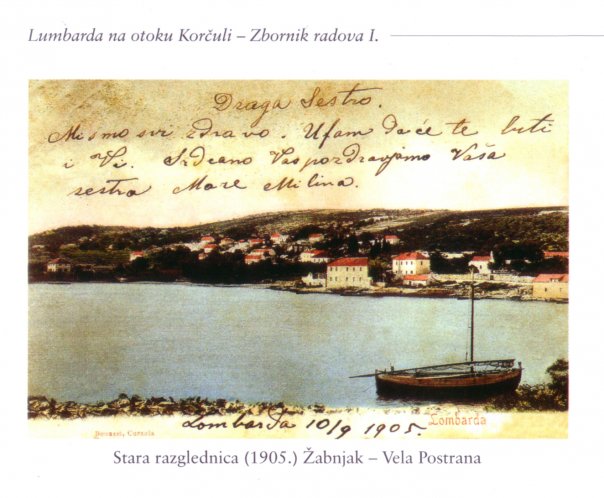 Lumbarda na otoku Korčuli – Zbornik radova I.
Draga Sestro.
Mi smo svi zdravo. Ufam da će te biti
i Vi. Srdcano Vas pozdravljamo Vaša
sestra Mare Milina.
Lombarda 10/9 1905.
Lombarda
Curzola
Stara razglednica (1905.) Žabnjak – Vela Postrana